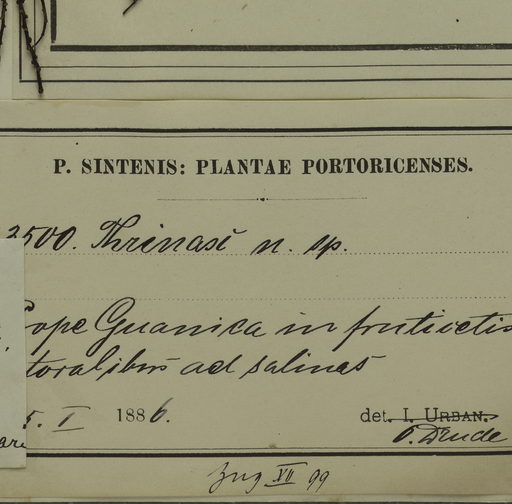 P. SINTENIS: PLANTAE PORTORICENSES.
3500. Thrinax n. sp.
Prope Guanica in fruticetis
toralibus ad salinas
5. I 1886.
det. I. URBAN.
O. Drude
XII 99